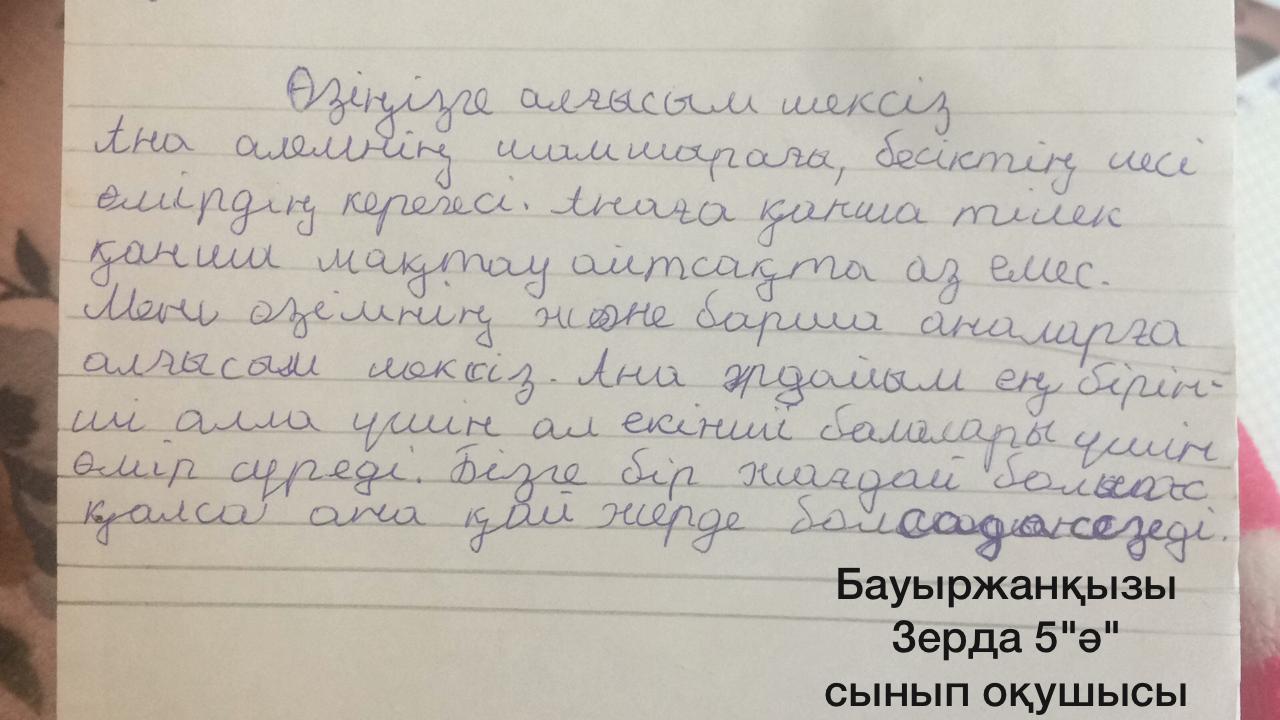 Өзіңізге алғысым шексіз
Ана әлемнің шамшырағы, бесіктің иесі
өмірдің керегесі. Анаға қанша тілек
қанша мақтау айтсақта аз емес.
Мені өзімнің және барша аналарға
алғысым шексіз. Ана әрдайым ең бірін-
ші алла үшін ал екінші балалары үшін
өмір сүреді. Бізге бір жағдай болып
қалса ана қай жерде болсада сезеді.
Бауыржанқызы
Зерда 5"ә"
сынып оқушысы